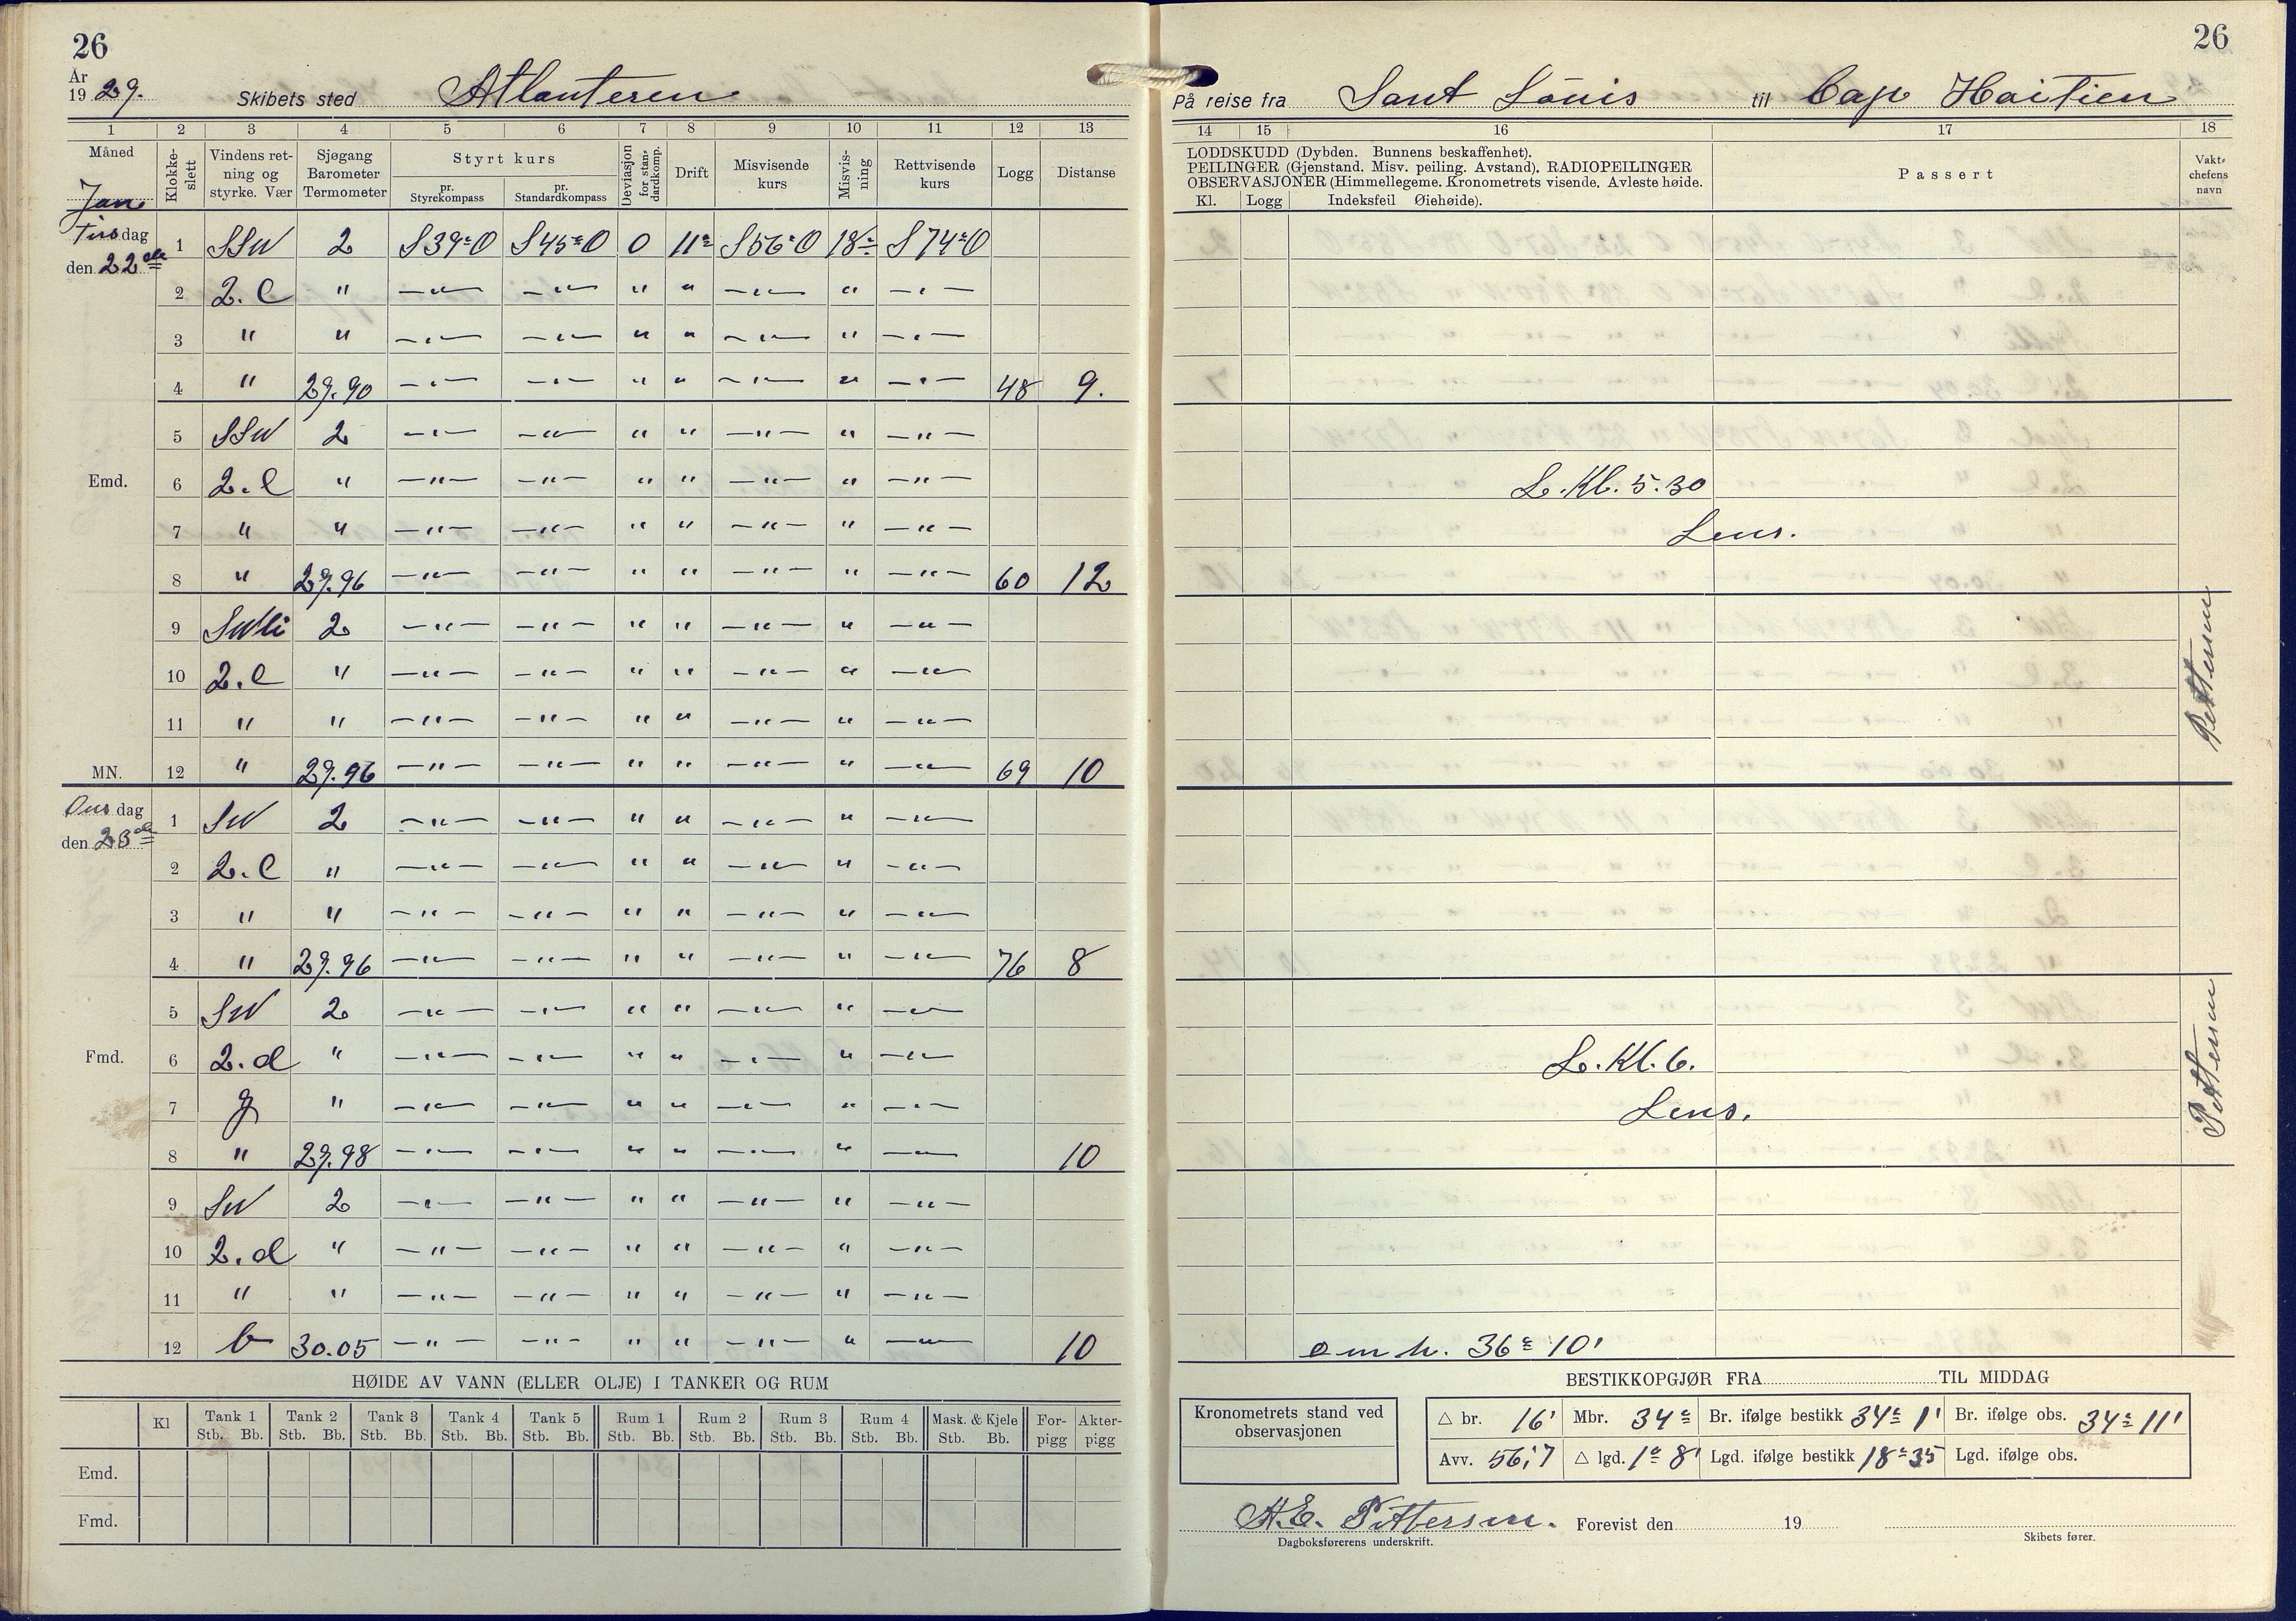 26
År
1929. Skibets sted Atlanteren
1 2 3 4 5 6 7 8 9 10 11 12 13
Måned Klokke-slett Vindens ret-ning og styrke. Vær Sjøgang Barometer Termometer Styrt kurs pr. Styrekompass pr. Standardkompass Deviasjon for stan-dardkomp. Drift Misvisende kurs Misvis-ning Rettvisende kurs Logg Distanse
Jan.
Tirsdag
den 22de
1 SSW 2 S39°O S45°O 0 11° S56°O 18° S74°O
2 2.C " —"— —"— " " —"— " —"—
3 " " —"— —"— " " —"— " —"—
4 " 29.90 —"— —"— " " —"— " —"— 48 9.
5 SSW 2 —"— —"— " " —"— " —"—
Emd. 6 2.C " —"— —"— " " —"— " —"—
7 " " —"— —"— " " —"— " —"—
8 " 29.96 —"— —"— " " —"— " —"— 60 12
9 2 —"— —"— " " —"— " —"—
10 2.C " —"— —"— " " —"— " —"—
11 " " —"— —"— " " —"— " —"—
MN. 12 " 29.96 —"— —"— " " —"— " —"— 69 10
Onsdag
den 23de
1 SW 2 —"— —"— " " —"— " —"—
2 2.C " —"— —"— " " —"— " —"—
3 " " —"— —"— " " —"— " —"—
4 " 29.96 —"— —"— " " —"— " —"— 76 8
5 SW 2 —"— —"— " " —"— " —"—
Fmd. 6 2.d " —"— —"— " " —"— " —"—
7 g " —"— —"— " " —"— " —"—
8 " 29.98 —"— —"— " " —"— " —"— 10
9 SW 2 —"— —"— " " —"— " —"—
10 2.d " —"— —"— " " —"— " —"—
11 " " —"— —"— " " —"— " —"—
12 b 30.05 —"— —"— " " —"— " —"— 10
HØIDE AV VANN (ELLER OLJE) I TANKER OG RUM
Kl Tank 1 Tank 2 Tank 3 Tank 4 Tank 5 Rum 1 Rum 2 Rum 3 Rum 4 Mask. & Kjele For-pigg Akter-pigg
Stb. Bb. Stb. Bb. Stb. Bb. Stb. Bb. Stb. Bb. Stb. Bb. Stb. Bb. Stb. Bb. Stb. Bb. Stb. Bb.
Emd.
Fmd.
26
På reise fra Sant Louis til Cap Haitien
14 15 16 17 18
LODDSKUDD (Dybden. Bunnens beskaffenhet).
PEILINGER (Gjenstand. Misv. peiling. Avstand). RADIOPEILINGER
OBSERVASJONER (Himmellegeme. Kronometrets visende. Avleste høide.
Kl. Logg Indeksfeil Øiehøide).
Passert
Vakt-chefens navn
L. Kl. 5.30
Lens.
Pettersen
L. Kl. 6.
Lens.
Pettersen
o m h. 36° 10'
BESTIKKOPGJØR FRA TIL MIDDAG
Kronometrets stand ved observasjonen
△ br. 16' Mbr. 34° Br. ifølge bestikk 34° 1' Br. ifølge obs. 34° 11'
Avv. 56,'7 △ lgd. 1° 8' Lgd. ifølge bestikk 18° 35 Lgd. ifølge obs.
A.E. Pettersen. Forevist den 19
Dagboksførerens underskrift. Skibets fører.